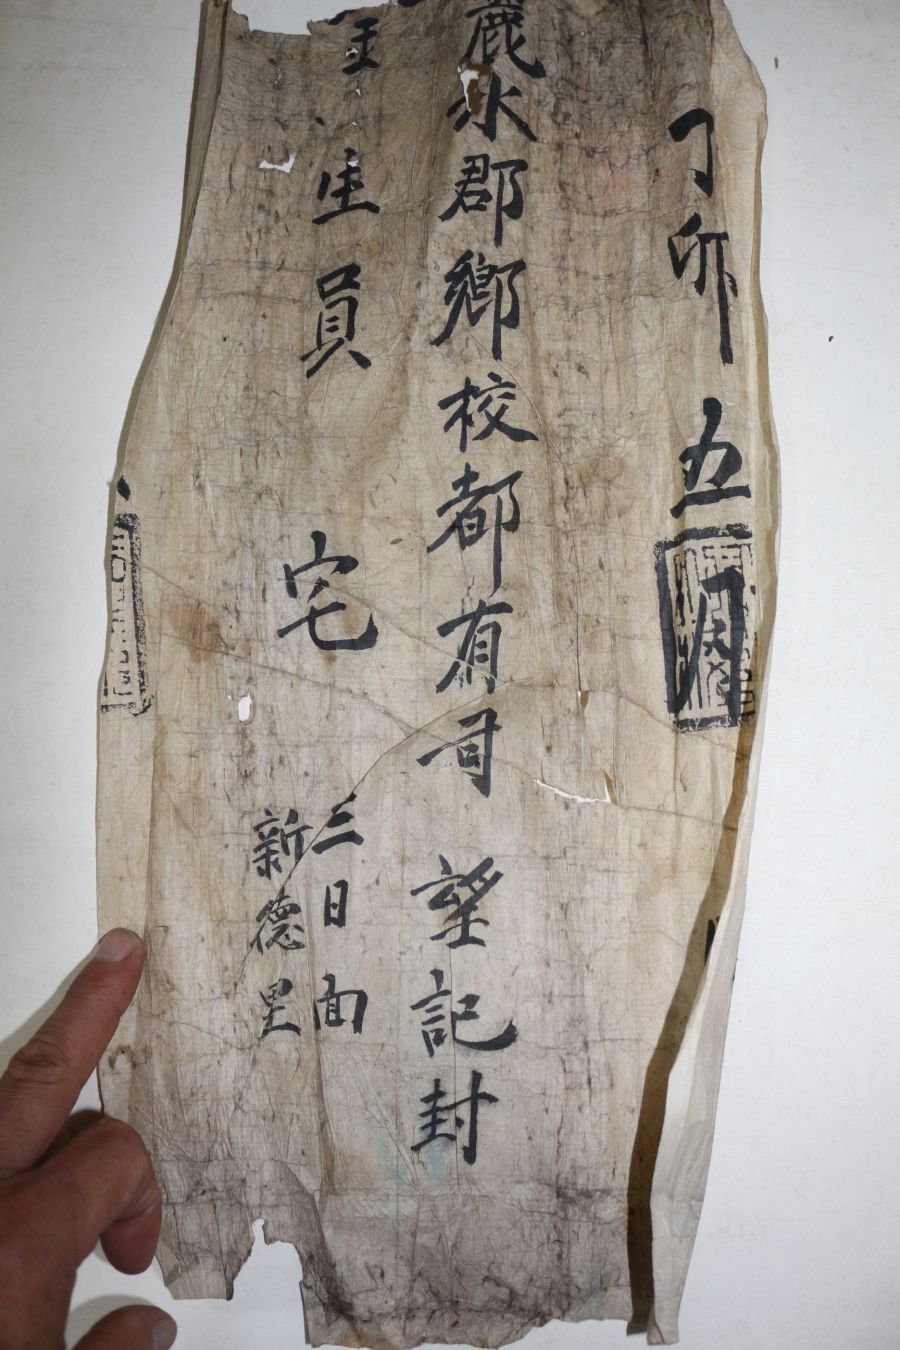 丁卯五月
麗水郡鄕校都有司望記封
生員宅
三日面
新德里